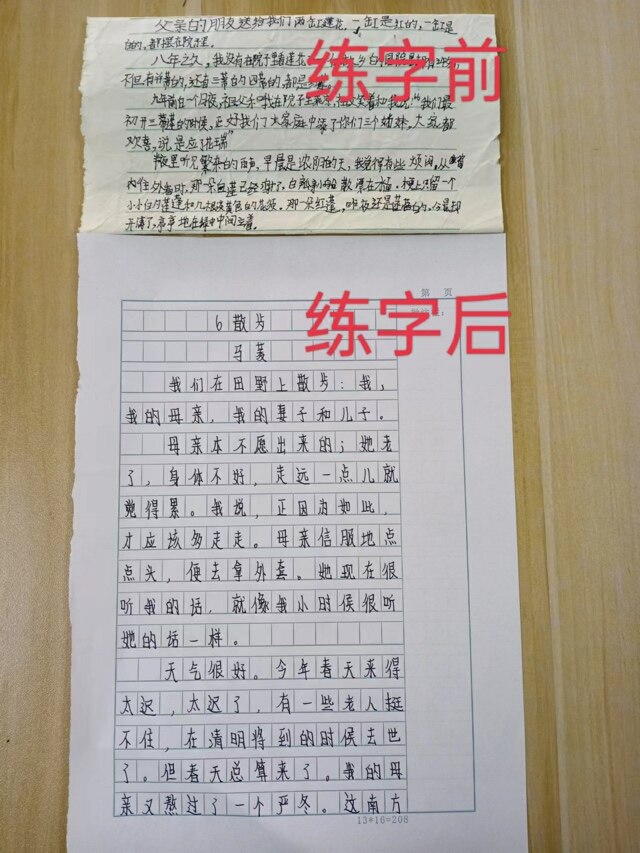 父亲的朋友送给我们两缸莲花,一缸是红的,一缸是
白的,都摆在院子里。
八年之久,我没有在院子里看莲花
练字前
九年前的一个月夜,
初开三蒂莲的时候,正好我们大家庭中添了你们三个姊妹。大家都
欢喜,说是应了花瑞"
早晨是浓阴的天,我觉得有些烦闷。从
那一朵白莲已经谢了,白
小小的莲蓬和几根淡黄色的花须。那一朵红莲,昨夜还是
开满了,亭亭地在绿叶中间立着。
第 页
练字后
6 散步
马菱
我们在田野上散步:我,
我的母亲,我的妻子和儿子。
母亲本不愿出来的;她老
了,身体不好,走远一点儿就
觉得累。我说,正因为如此,
才应该多走走。母亲信服地点
点头,便去拿外套。她现在很
听我的话,就像我小时候很听
她的话一样。
天气很好。今年春天来得
太迟,太迟了,有一些老人挺
不住,在清明将到的时候去世
了。但春天总算来了。我的母
亲又熬过了一个严冬。这南方
13*16=208